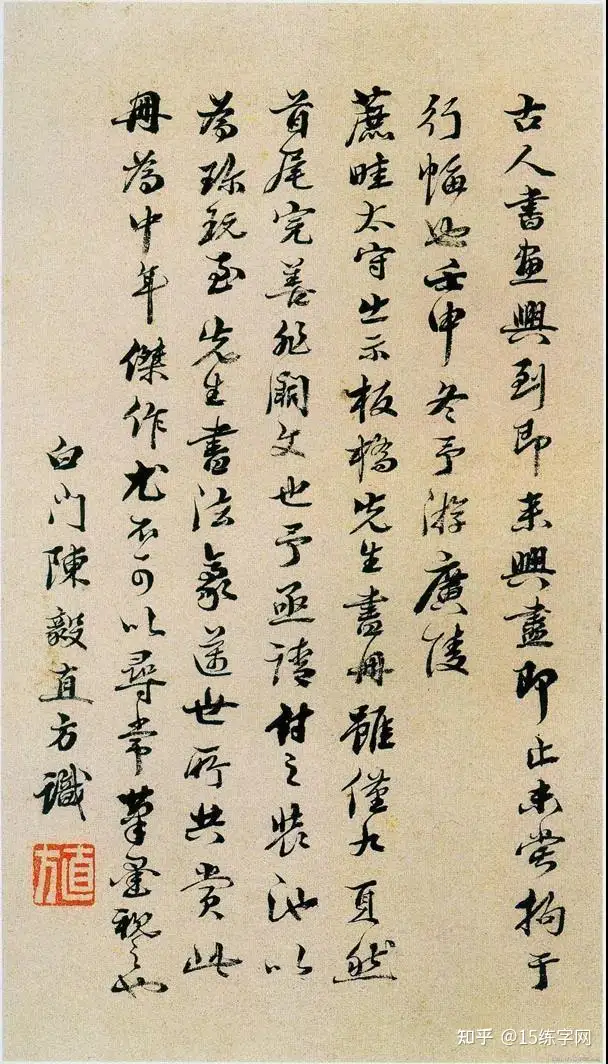 古人書畫興到即來興盡即止未嘗拘于
行幅也壬申冬予游廣陵
蔗畦太守出示板橋先生書冊雖僅九頁然
首尾完善非闕文也予亟請付之裝池以
為珍玩至先生書法豪邁世所共賞此
冊為中年傑作尤不可以尋常筆墨視之也
白門陳毅直方識
直方
知乎 @15练字网